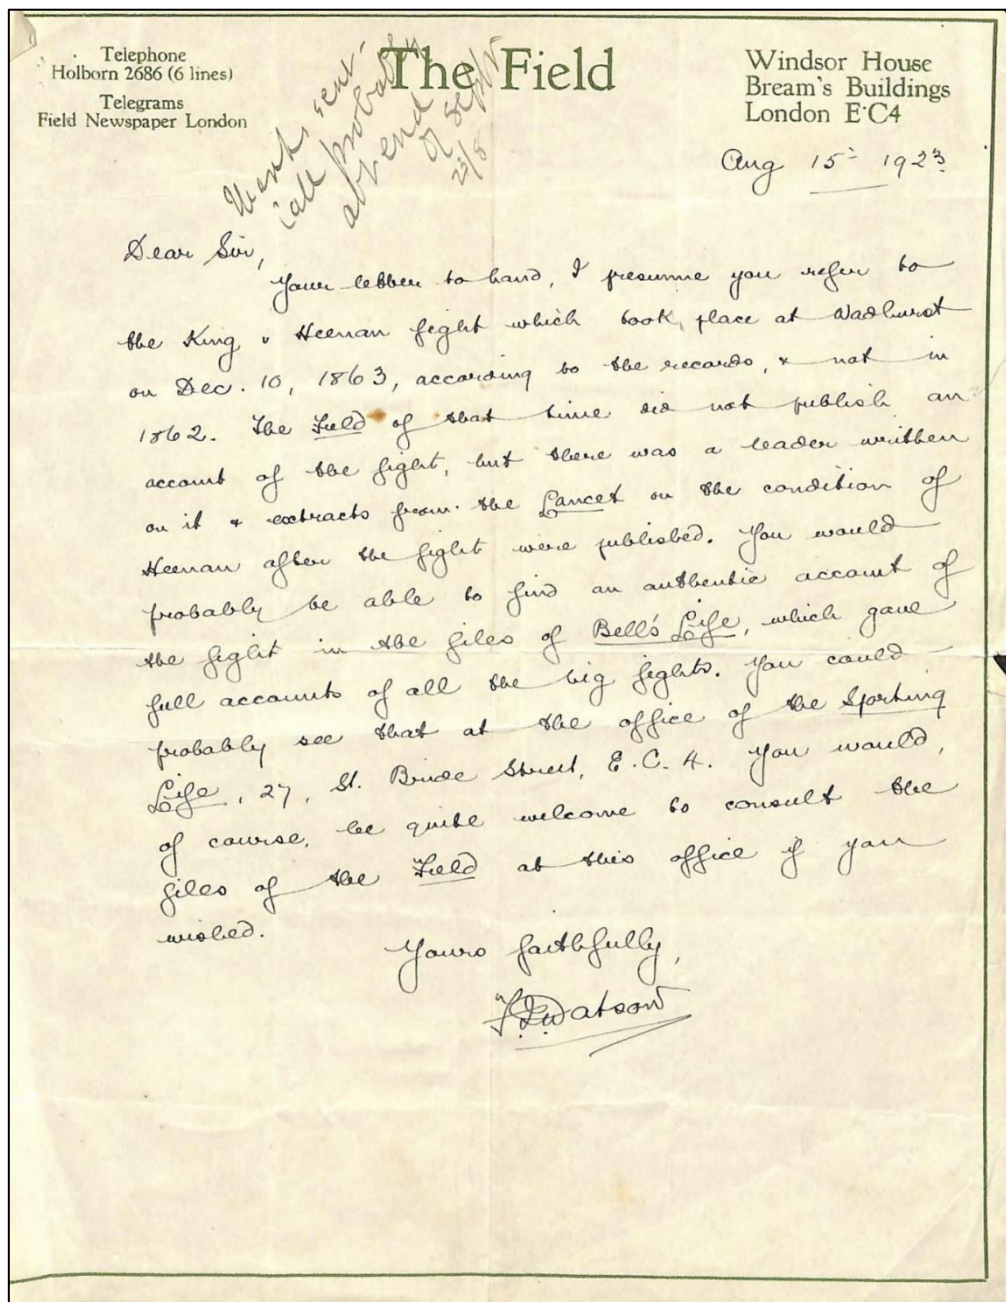 Telephone
Holborn 2686 (6 lines)
Telegrams
Field Newspaper London
The Field
Windsor House
Bream's Buildings
London E.C4
sent
call probably
abt end
of Sept
23/8
Aug 15 1923
Dear Sir,
Your letter to hand, I presume you refer to
the King v Heenan fight which took place at Wadhurst
on Dec. 10, 1863, according to the records, & not in
1862. The Field of that time did not publish an
account of the fight, but there was a leader written
on it & extracts from the Lancet on the condition of
Heenan after the fight were published. You would
probably be able to find an authentic account of
the fight in the files of Bell's Life, which gave
full accounts of all the big fights. You could
probably see that at the office of the Sporting
Life, 27, St. Bride Street, E.C.4. You would,
of course, be quite welcome to consult the
files of the Field at this office if you
wished.
Yours faithfully,
Watson